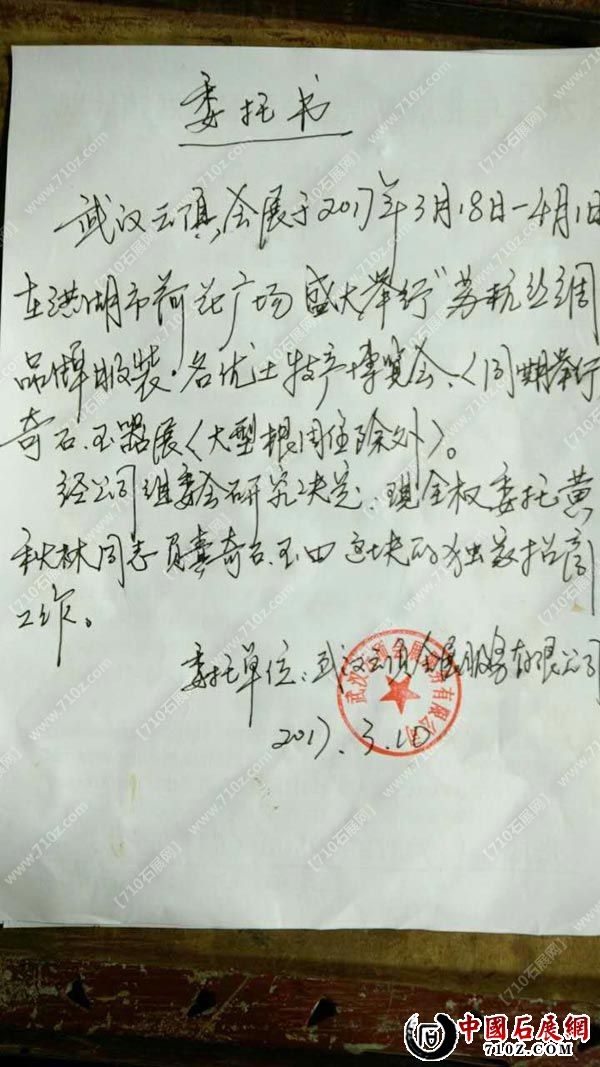 委托书
武汉云顶会展于2017年3月18日一4月1日
在洪湖市荷花广场盛大举行"苏杭丝绸
品牌服装·名优土特产博览会、〈同期举行
奇石、玉器展〈大型根周住除外〉。
经公司组委会研究决定、现全权委托黄
秋林同志负责奇石、玉 这块的独家招商
工作。
委托单位:武汉云顶会展服务有限公司
武汉云 会展服务有限公司
2017.3.10
【710石展网】
www.710z.com
中國石展網
710Z.COM